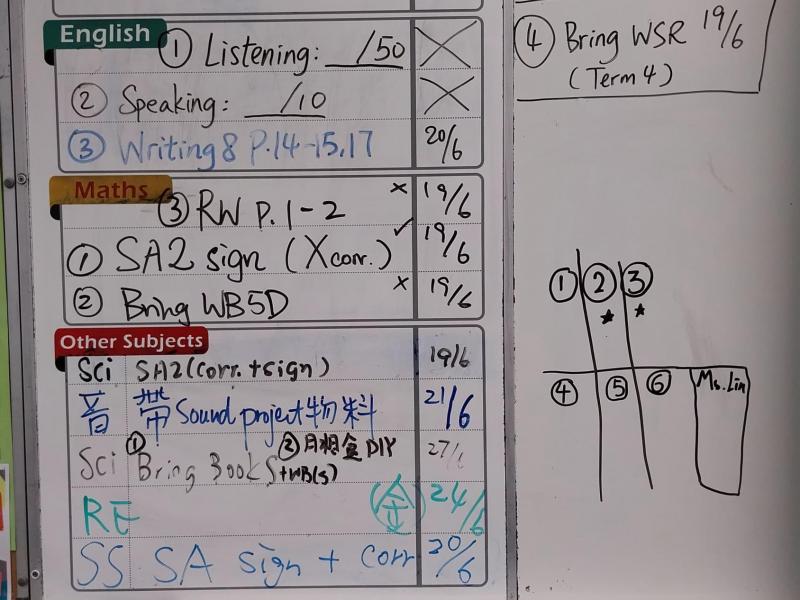 English
① Listening: __/50
② Speaking: __/10
③ Writing 8 P.14-15,17 20/6
Maths
③ RW P.1-2 × 19/6
① SA2 sign (X corr.) ✓ 19/6
② Bring WB5D × 19/6
Other Subjects
Sci SA2 (corr. + sign) 19/6
音 帶 Sound project 物料 21/6
Sci ① Bring Book 5 + WB(s) ② 月相盒 DIY 27/6
RE (金) 24/6
SS SA sign + corr 20/6
④ Bring WSR 19/6
(Term 4)
① ② ③
★ ★
④ ⑤ ⑥ Ms. Lin